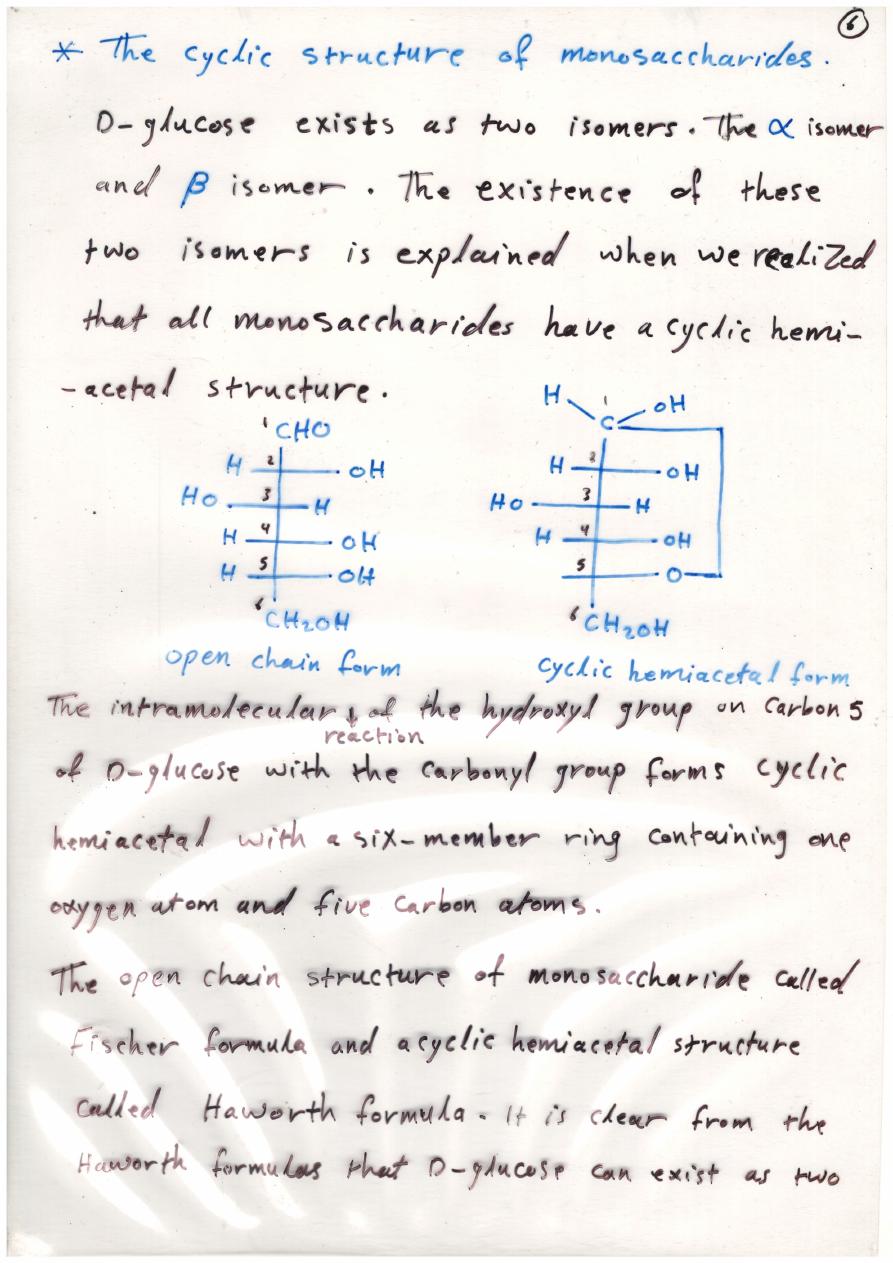 6
* The cyclic structure of monosaccharides.
D-glucose exists as two isomers. The α isomer
and β isomer. The existence of these
two isomers is explained when we realized
that all monosaccharides have a cyclic hemi-
-acetal structure.
1 CHO
H 2 OH
HO 3 H
H 4 OH
H 5 OH
6 CH2OH
open chain form
H 1 OH
C
H 2 OH
HO 3 H
H 4 OH
5 O
6 CH2OH
cyclic hemiacetal form
The intramolecular ↓ of the hydroxyl group on Carbon 5
reaction
of D-glucose with the carbonyl group forms cyclic
hemiacetal with a six-member ring containing one
oxygen atom and five carbon atoms.
The open chain structure of monosaccharide called
Fischer formula and a cyclic hemiacetal structure
called Haworth formula. It is clear from the
Haworth formulas that D-glucose can exist as two